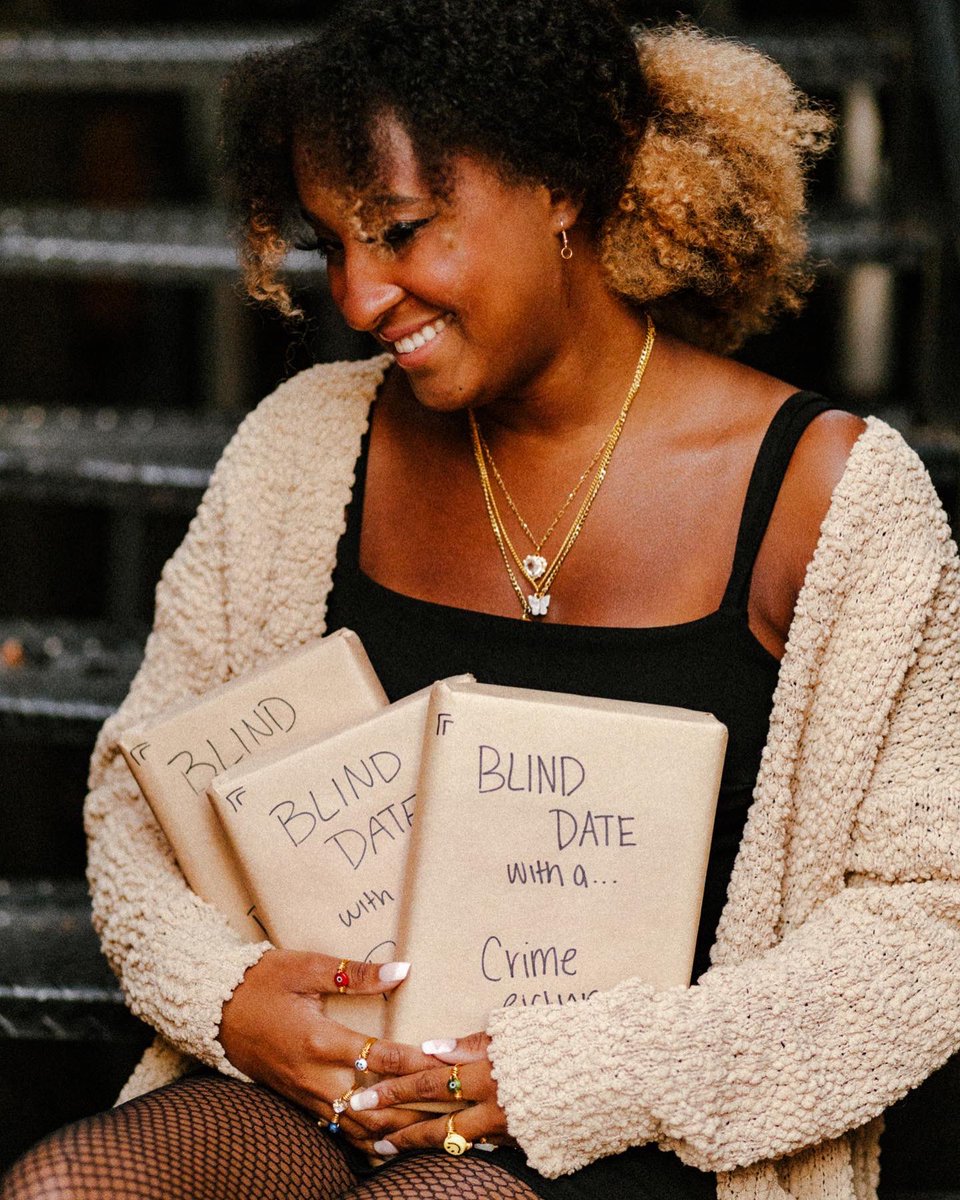 BLIND
BLIND
DATE
with
BLIND
DATE
with a...
Crime